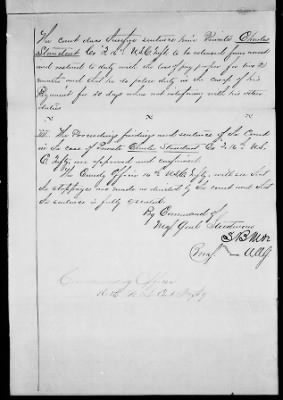 The Court does therefore sentence him Private Charles
Standard Co "I" 14th U.S.C. Infty. to be released from arrest
and returned to duty with the loss of pay proper for two (2)
months and that he do police duty in the camp of his
Regiment for 20 days when not interfering with his other
duties
III. The Proceedings findings and sentence of the Court
in the case of Private Charles Standard Co I. 14th U.S.
C. Infty. are approved and confirmed.
The Comdg Officer 14th U.S.C. Infty. will see that
the stoppages are made as directed by the court and that
the sentence is fully executed.
By Command of
Maj Genl Steedman
Maj AAG
Commanding Officer
14th U.S. Col. Infty